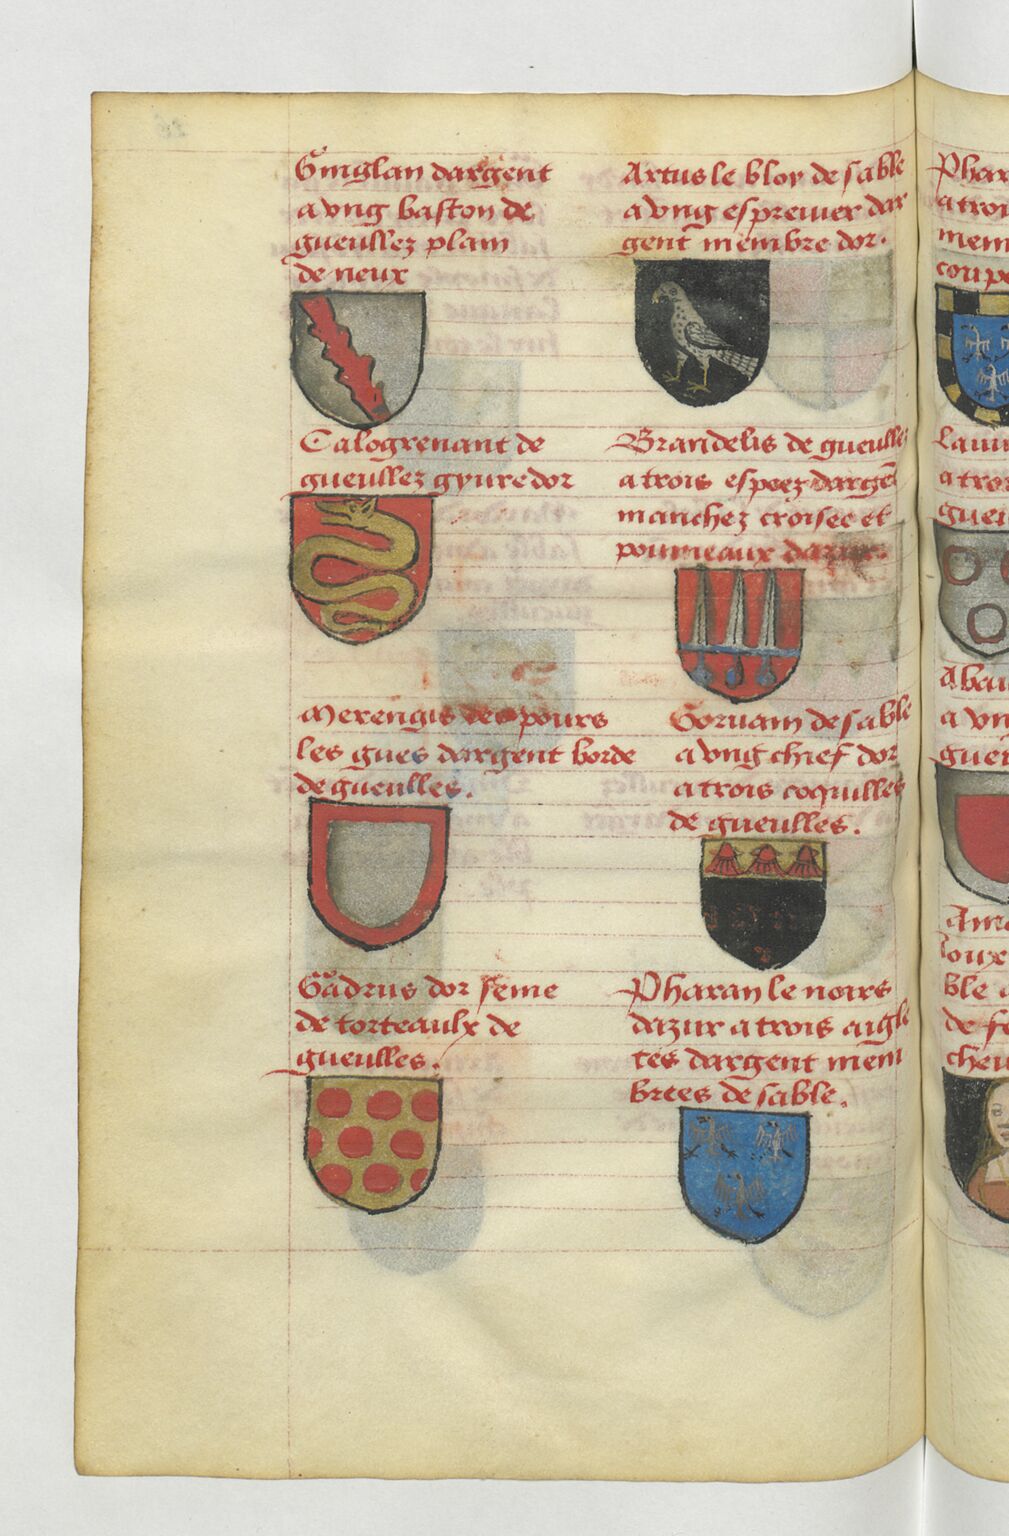 Ginglan dargent
a vng baston de
gueullez plain
de neux
Calogrenant de
gueullez gyure dor
Merengis des pours
les gues dargent borde
de gueulles.
Gadrus dor seme
de torteaulx de
gueulles.
Artus le bloy de sable
a vng espreuier dar
gent membre dor.
Brandelis de gueulles
a trois espeez dargen
manchez croisee et
pommeaux dazur.
Goruain de sable
a vng chief dor
a trois coquilles
de gueulles.
Pharan le noirs
dazur a trois aigle
tes dargent mem
brees de sable.
Phar
a troi
mem
coupe
Lauu
a troi
gueu
a vn
gueu
loux
ble
de fe
cheu